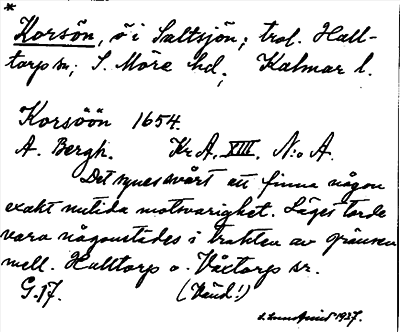 *
Korsön, ö i Saltsjön; trol. Hall-
torp sn; S. Möre hd, Kalmar l.
Korsöön 1654.
A. Bergh. Kr A, XIII. N:o A.
Det synes svårt att finna någon
exakt nutida motsvarighet. Läget torde
vara någonstädes i trakten av gränsen
mell. Halltorp o. Växtorp sr.
G. 17. (Vänd!)
1937.